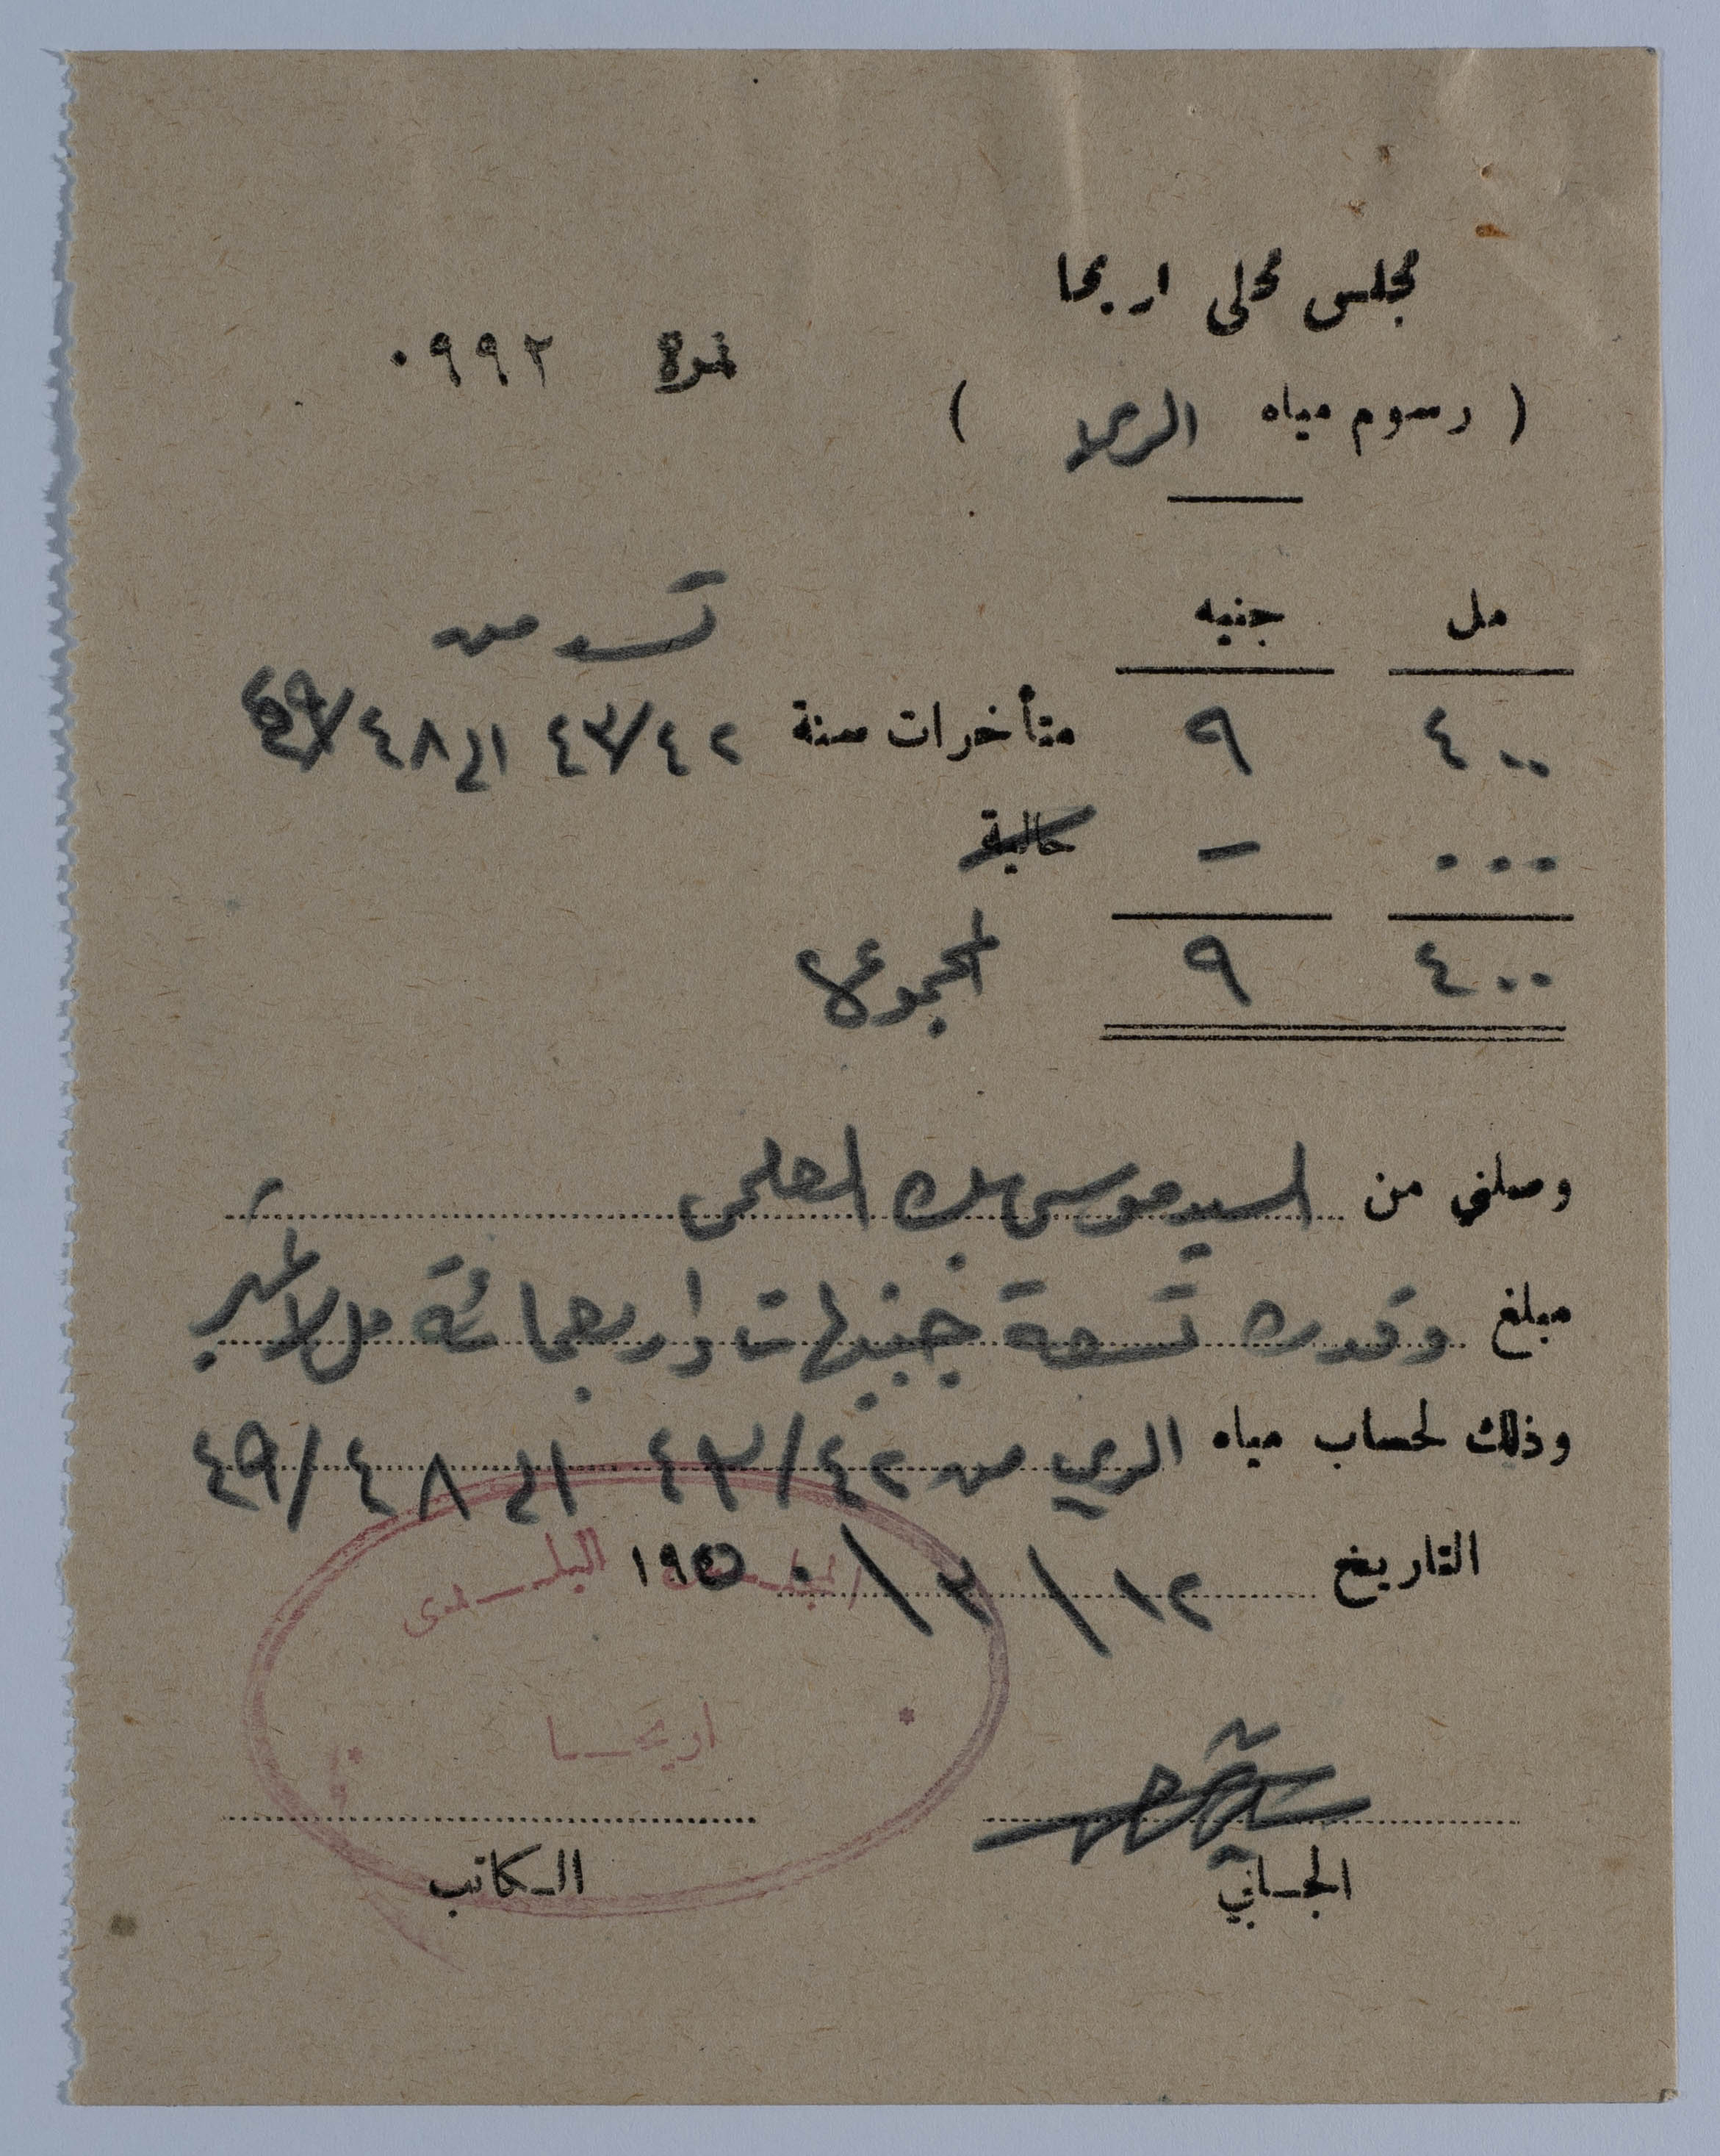 مجلس محلي اريحا
نمرة ٠٩٩٢
( رسوم مياه الري )
مل جنيه
تسد من
٤٠٠ ٩ متأخرات سنة ٤٣/٤٢ الى ٤٩/٤٨
٠٠٠ - حالية
٤٠٠ ٩ المجموع
وصلني من السيد موسى بك العلمي
مبلغ وقدره تسعة جنيهات واربعمائة مل لا غير
وذلك لحساب مياه الري من ٤٣/٤٢ الى ٤٩/٤٨
التاريخ ١٢ / ٢ / ١٩٥٠
المجلس البلدي
اريحا
الجابي
الكاتب